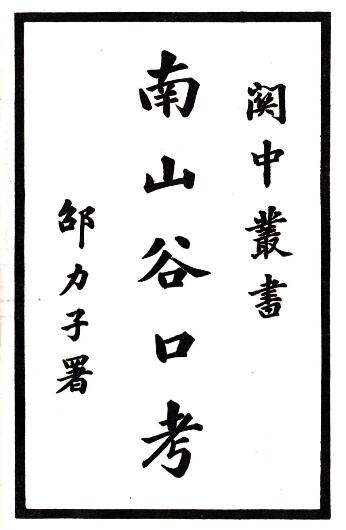 関中叢書
南山谷口考
邵力子署